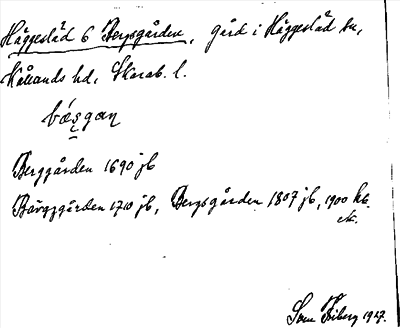 Häggesläd 6 Bergsgården, gård i Häggesläd sn,
Kållands hd, Skarab. l.
bæ̀s̨gan
Berggården 1690 jb
Bärgzgården 1710 jb, Bergsgården 1807 jb, 1900 kb.
etc.
Sven Friberg 1927.